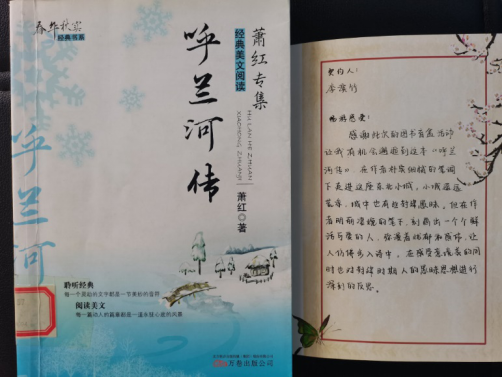 春华秋实
经典书系
萧红专集
经典美文阅读
呼兰河传
HU LAN HE ZHUAN
XIAOHONG ZHUANJI
萧红 著
呼兰河
聆听经典
每一个灵动的文字都是一节美妙的音符
阅读美文
每一篇动人的篇章都是一道永驻心底的风景
万卷出版公司
契约人：
畅游感受：
感谢此次的图书盲盒活动
让我有机会邂逅到这本《呼兰
河传》在作者朴实细腻的笔调
下走进这座东北小城，小城温温
城中也有些封建愚昧。但在作
者明丽凄婉的笔下，刻画出一个个鲜
活可爱的人，弥漫着忧郁的感伤，让
人仿佛步入诗中，在感受意境美的同
时也对封建时期人的愚昧思想进行
深刻的反思。